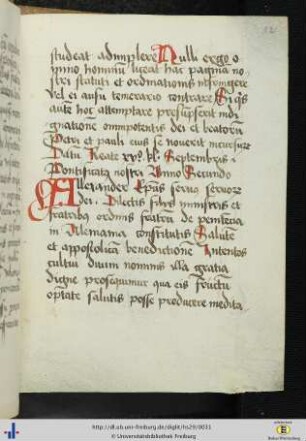 12
studeat adimplere Nulli ergo o
mino hominū liceat hac pagina no
stri statuti et ordinationis infringere
vel ei ausu temerario contraire Si q̄s
autē hoc attemptare presupserit indi
gnationē omnipotentis dei et beatorū
Petri et pauli eius se noverit incursurū
Datū Reate xvj kl Septembris
Pontificatus nostri Anno Secundo
Allexander Ep̄us servus servorū
dei Dilectis filijs ministris et
fratribus ordinis fratrū de penitētia
in Alemania constitutis Salutē
et appostolicā benedictionē Intentos
cultui divini nominis illa gratia
digne prosequimur qua eis fructū
optate salutis posse producere medita
http://dl.ub.uni-freiburg.de/diglit/hs29/0031
© Universitätsbibliothek Freiburg